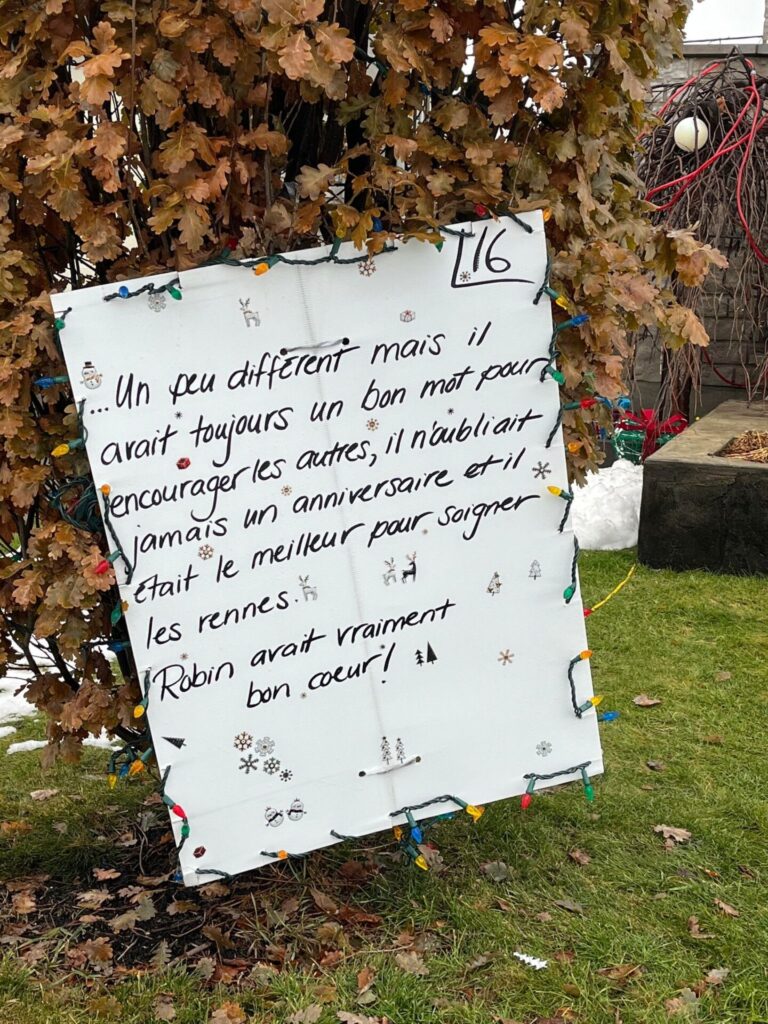 16
...Un peu différent mais il
avait toujours un bon mot pour
encourager les autres, il n'oubliait
jamais un anniversaire et il
était le meilleur pour soigner
les rennes.
Robin avait vraiment
bon coeur!